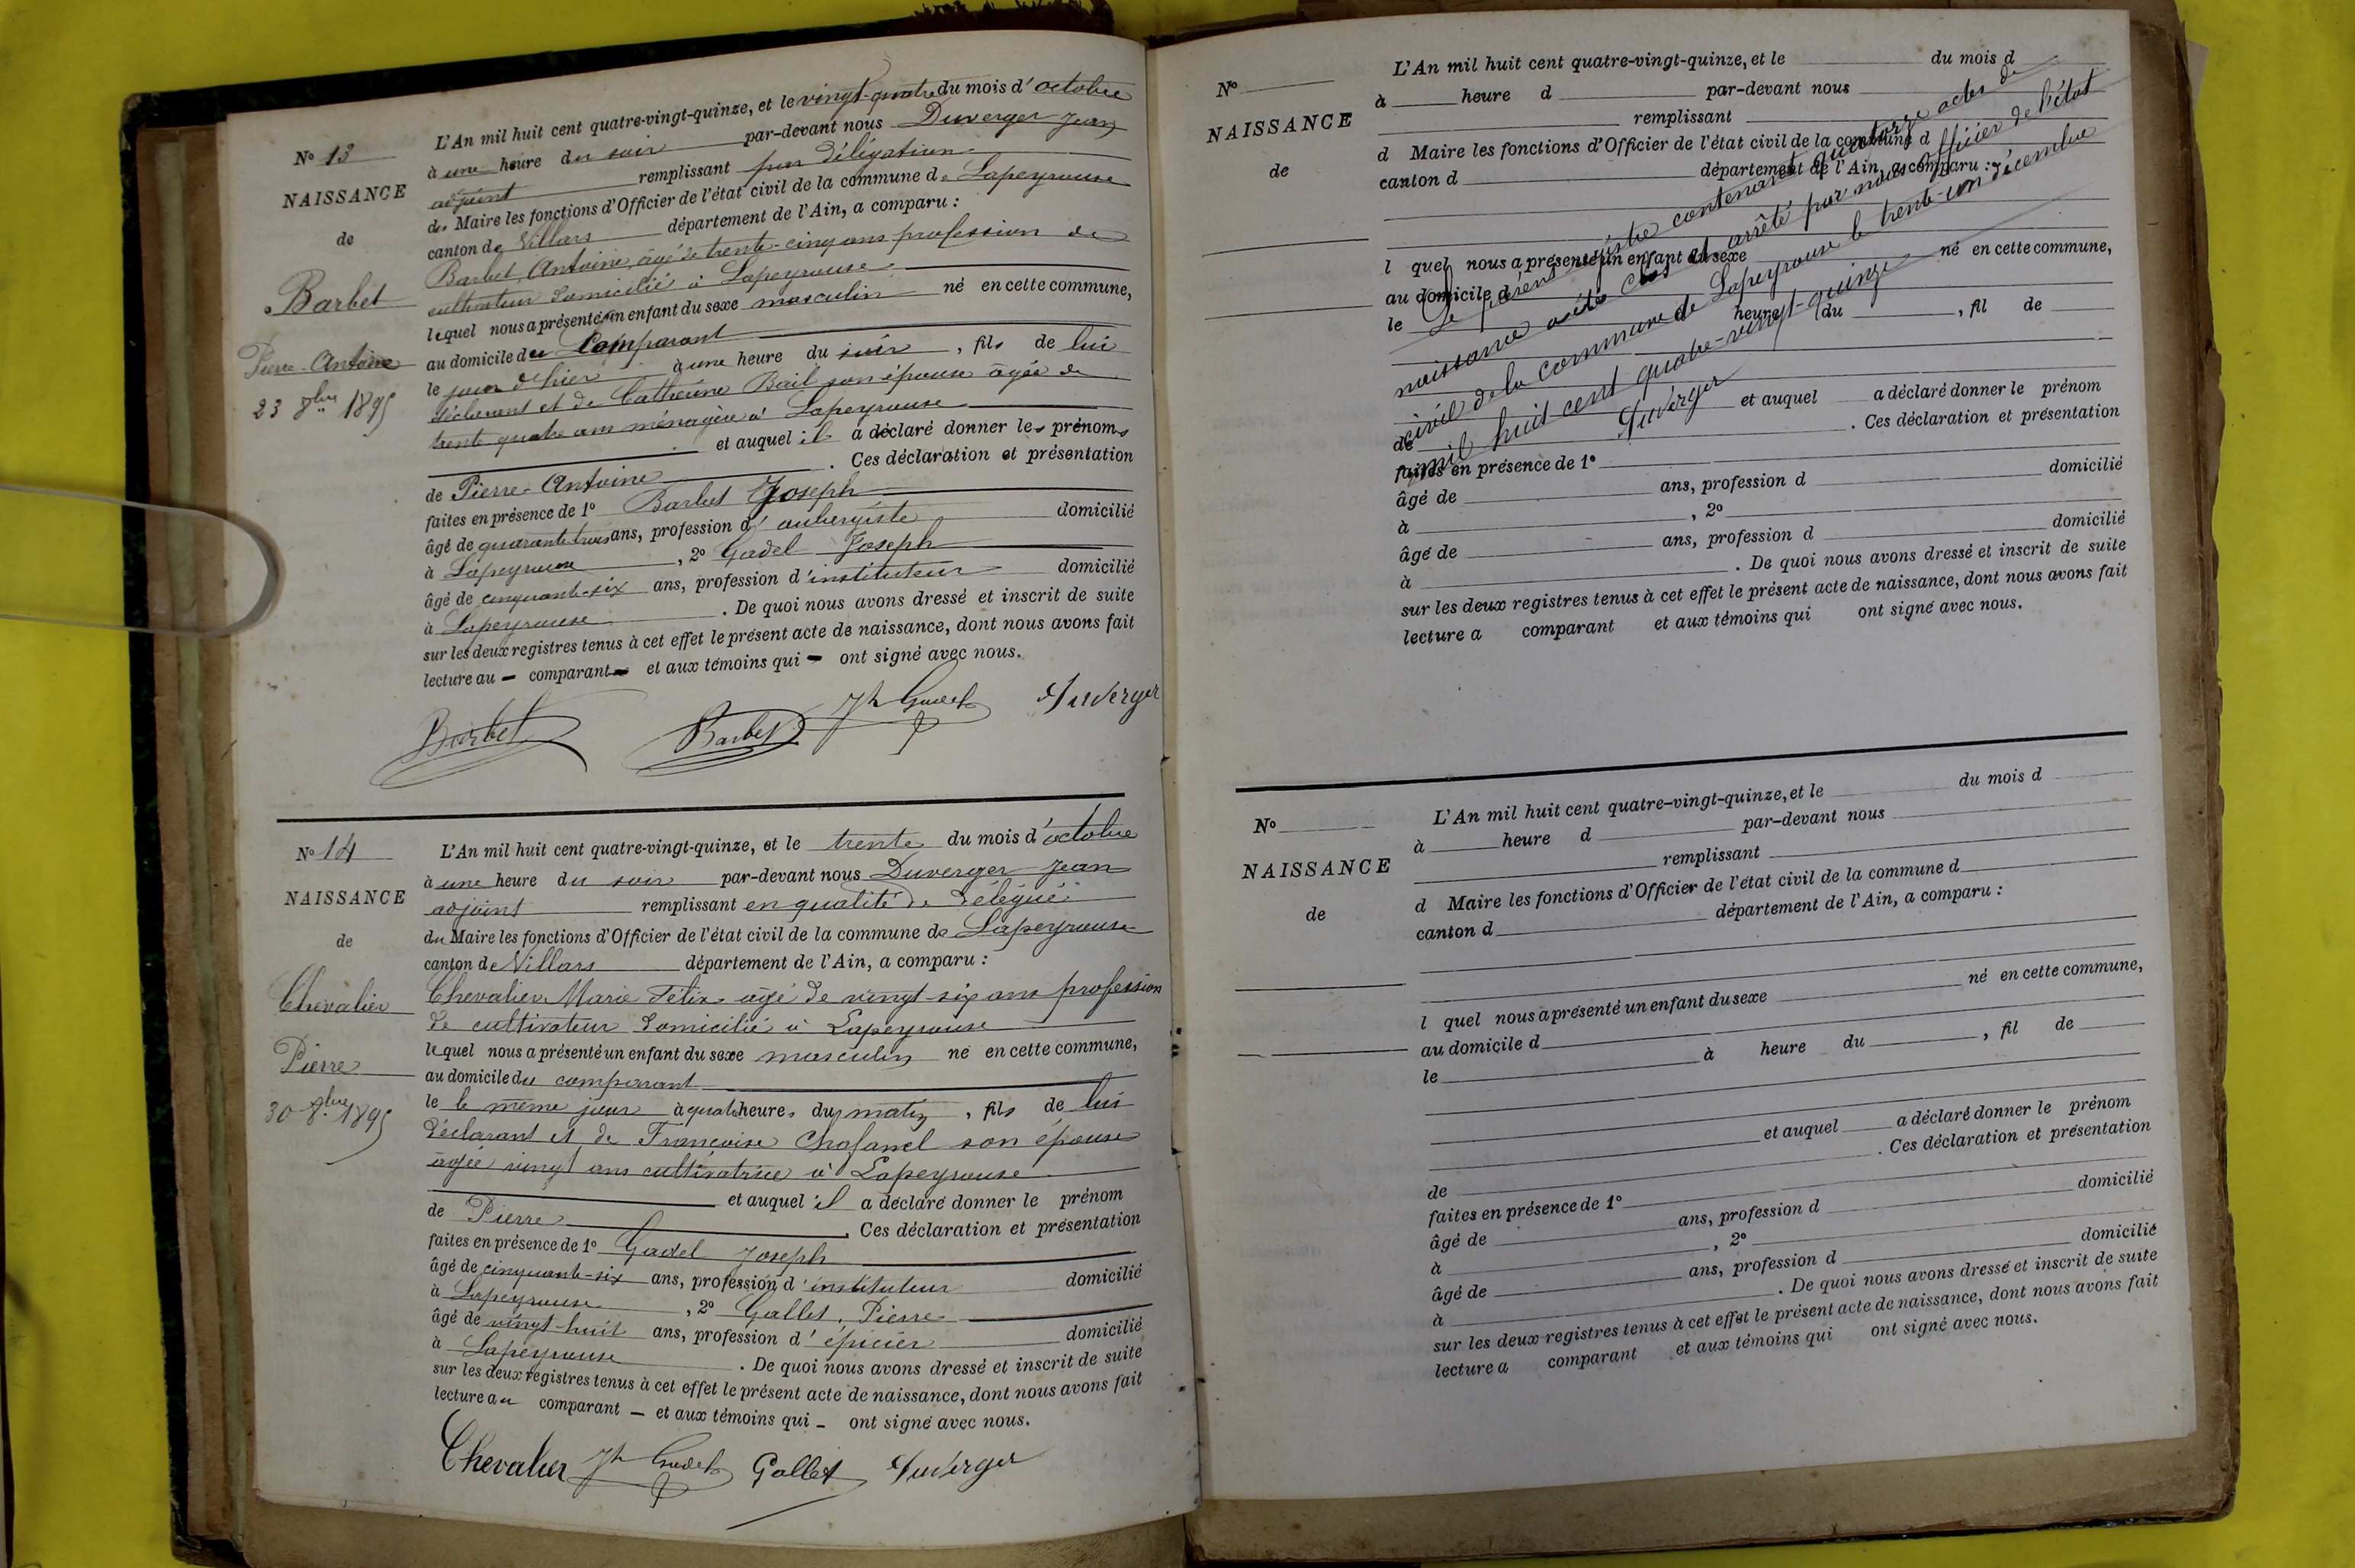 N° 13
NAISSANCE
de
Barbet
Pierre-Antoine
23 8bre 1895
L'An mil huit cent quatre-vingt-quinze, et le vingt-quatre du mois d'octobre
à une heure du soir par-devant nous Duverger Jean
adjoint remplissant par délégation
du Maire les fonctions d'Officier de l'état civil de la commune de Lapeyrouse
canton de Villars département de l'Ain, a comparu :
Barbet Antoine, âgé de trente-cinq ans profession de
cultivateur domicilié à Lapeyrouse
lequel nous a présenté un enfant du sexe masculin né en cette commune,
au domicile du Comparant
le jour d'hier à une heure du soir, fils de lui
déclarant et de Catherine Bail son épouse âgée de
trente quatre ans ménagère à Lapeyrouse
et auquel il a déclaré donner les prénoms
de Pierre-Antoine. Ces déclaration et présentation
faites en présence de 1° Barbet Joseph
âgé de quarante trois ans, profession d'aubergiste domicilié
à Lapeyrouse, 2° Gadel Joseph
âgé de cinquante-six ans, profession d'instituteur domicilié
à Lapeyrouse. De quoi nous avons dressé et inscrit de suite
sur les deux registres tenus à cet effet le présent acte de naissance, dont nous avons fait
lecture au comparant et aux témoins qui ont signé avec nous.
Barbet Barbet Jh Gadel Duverger
N° 14
NAISSANCE
de
Chevalier
Pierre
30 8bre 1895
L'An mil huit cent quatre-vingt-quinze, et le trente du mois d'octobre
à une heure du soir par-devant nous Duverger Jean
adjoint remplissant en qualité de délégué
du Maire les fonctions d'Officier de l'état civil de la commune de Lapeyrouse
canton de Villars département de l'Ain, a comparu :
Chevalier Marie Félix âgé de vingt-six ans profession
de cultivateur domicilié à Lapeyrouse
lequel nous a présenté un enfant du sexe masculin né en cette commune,
au domicile du comparant
le le même jour à quatre heures du matin, fils de lui
déclarant et de Françoise son épouse
âgée vingt ans cultivatrice à Lapeyrouse
et auquel il a déclaré donner le prénom
de Pierre. Ces déclaration et présentation
faites en présence de 1° Gadel Joseph
âgé de cinquante-six ans, profession d'instituteur domicilié
à Lapeyrouse, 2° Gallet, Pierre
âgé de vingt-huit ans, profession d'épicier domicilié
à Lapeyrouse. De quoi nous avons dressé et inscrit de suite
sur les deux registres tenus à cet effet le présent acte de naissance, dont nous avons fait
lecture au comparant et aux témoins qui ont signé avec nous.
Chevalier Jh Gadel Gallet Duverger
N°
NAISSANCE
de
L'An mil huit cent quatre-vingt-quinze, et le du mois d
à heure d par-devant nous
remplissant
d Maire les fonctions d'Officier de l'état civil de la commune d
canton d département de l'Ain, a comparu :
l quel nous a présenté un enfant du sexe né en cette commune,
au domicile d
le à heure du , fil de
et auquel a déclaré donner le prénom
de . Ces déclaration et présentation
faites en présence de 1°
âgé de ans, profession d domicilié
à , 2°
âgé de ans, profession d domicilié
à . De quoi nous avons dressé et inscrit de suite
sur les deux registres tenus à cet effet le présent acte de naissance, dont nous avons fait
lecture a comparant et aux témoins qui ont signé avec nous.
Le présent registre contenant quatorze actes de
naissance a été clos et arrêté par nous officier de l'état
civil de la commune de Lapeyrouse le trente-un décembre
mil huit cent quatre-vingt-quinze
Duverger
N°
NAISSANCE
de
L'An mil huit cent quatre-vingt-quinze, et le du mois d
à heure d par-devant nous
remplissant
d Maire les fonctions d'Officier de l'état civil de la commune d
canton d département de l'Ain, a comparu :
l quel nous a présenté un enfant du sexe né en cette commune,
au domicile d
le à heure du , fil de
et auquel a déclaré donner le prénom
de . Ces déclaration et présentation
faites en présence de 1°
âgé de ans, profession d domicilié
à , 2°
âgé de ans, profession d domicilié
à . De quoi nous avons dressé et inscrit de suite
sur les deux registres tenus à cet effet le présent acte de naissance, dont nous avons fait
lecture a comparant et aux témoins qui ont signé avec nous.